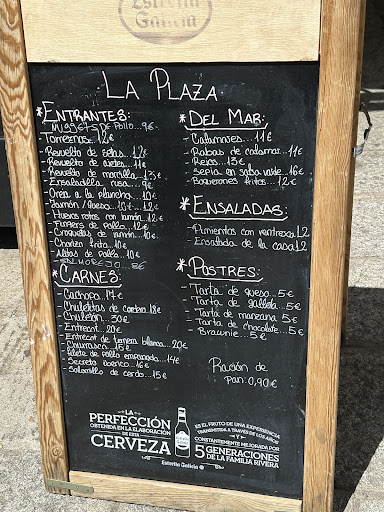 Estrella
Galicia
LA PLAZA
*ENTRANTES:
- NUGGETS DE POLLO... 9€
- Torreznos... 12€
- Revuelto de setas... 12€
- Revuelto de ajetes... 11€
- Revuelto de morcilla... 13€
- Ensaladilla rusa... 9€
- Oreja a la plancha... 10€
- Jamón/Queso... 10€
- Huevos rotos con jamón... 12€
- Fingers de pollo... 12€
- Croquetas de jamón... 10€
- Chorizo frito... 10€
- Alitas de pollo... 10€
- SALMOREJO... 8€
*CARNES:
- Cachopo... 17€
- Chuletitas de cordero... 18€
- Chuletón... 30€
- Entrecot... 20€
- Entrecot de ternera blanca... 20€
- Churrasco... 15€
- Filete de pollo empanado... 14€
- Secreto ibérico... 16€
- Solomillo de cerdo... 15€
*DEL MAR:
- Calamares... 11€
- Rabas de calamar... 11€
- Rejos... 13€
- Sepia en salsa verde... 16€
- Boquerones fritos... 12€
*ENSALADAS:
- Pimientos con ventresca 12
- Ensalada de la casa 12
*POSTRES:
- Tarta de queso... 5€
- Tarta de galleta... 5€
- Tarta de manzana... 5€
- Tarta de chocolate... 5€
- Brownie... 5€
Ración de
pan: 0,90€
LA
PERFECCIÓN
OBTENIDA EN LA ELABORACIÓN
DE ESTA
CERVEZA
Estrella Galicia
ES EL FRUTO DE UNA EXPERIENCIA
TRANSMITIDA A TRAVÉS DE LOS AÑOS
Y
CONSTANTEMENTE MEJORADA POR
5 GENERACIONES
DE LA FAMILIA RIVERA